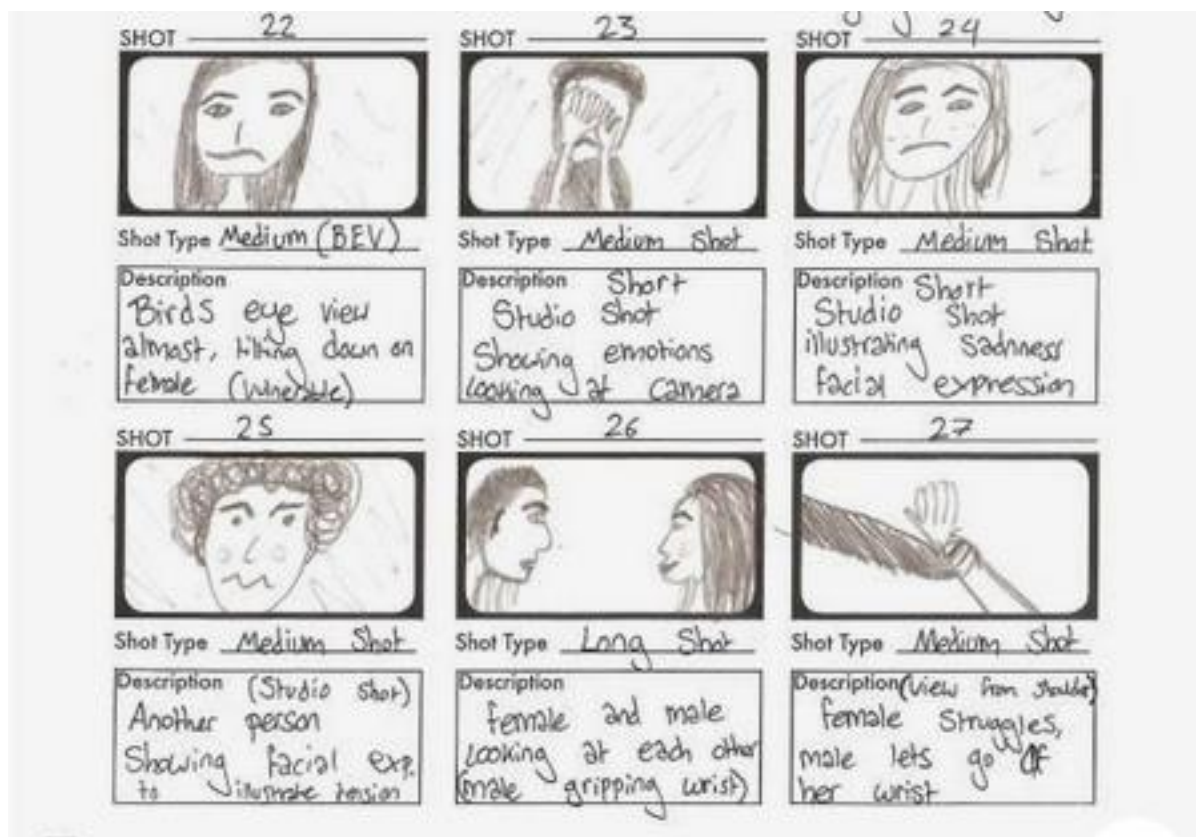 SHOT 22
Shot Type Medium (BEV)
Description
Birds eye view
almost, tilting down on
female (vulnerable)
SHOT 23
Shot Type Medium Shot
Description Short
Studio Shot
Showing emotions
looking at camera
SHOT 24
Shot Type Medium Shot
Description Short
Studio Shot
illustrating Sadnness
facial expression
SHOT 25
Shot Type Medium Shot
Description (Studio Shot)
Another person
Showing facial exp.
to illustrate tension
SHOT 26
Shot Type Long Shot
Description
female and male
looking at each other
(male gripping wrist)
SHOT 27
Shot Type Medium Shot
Description (view from shoulder)
female struggles,
male lets go of
her wrist